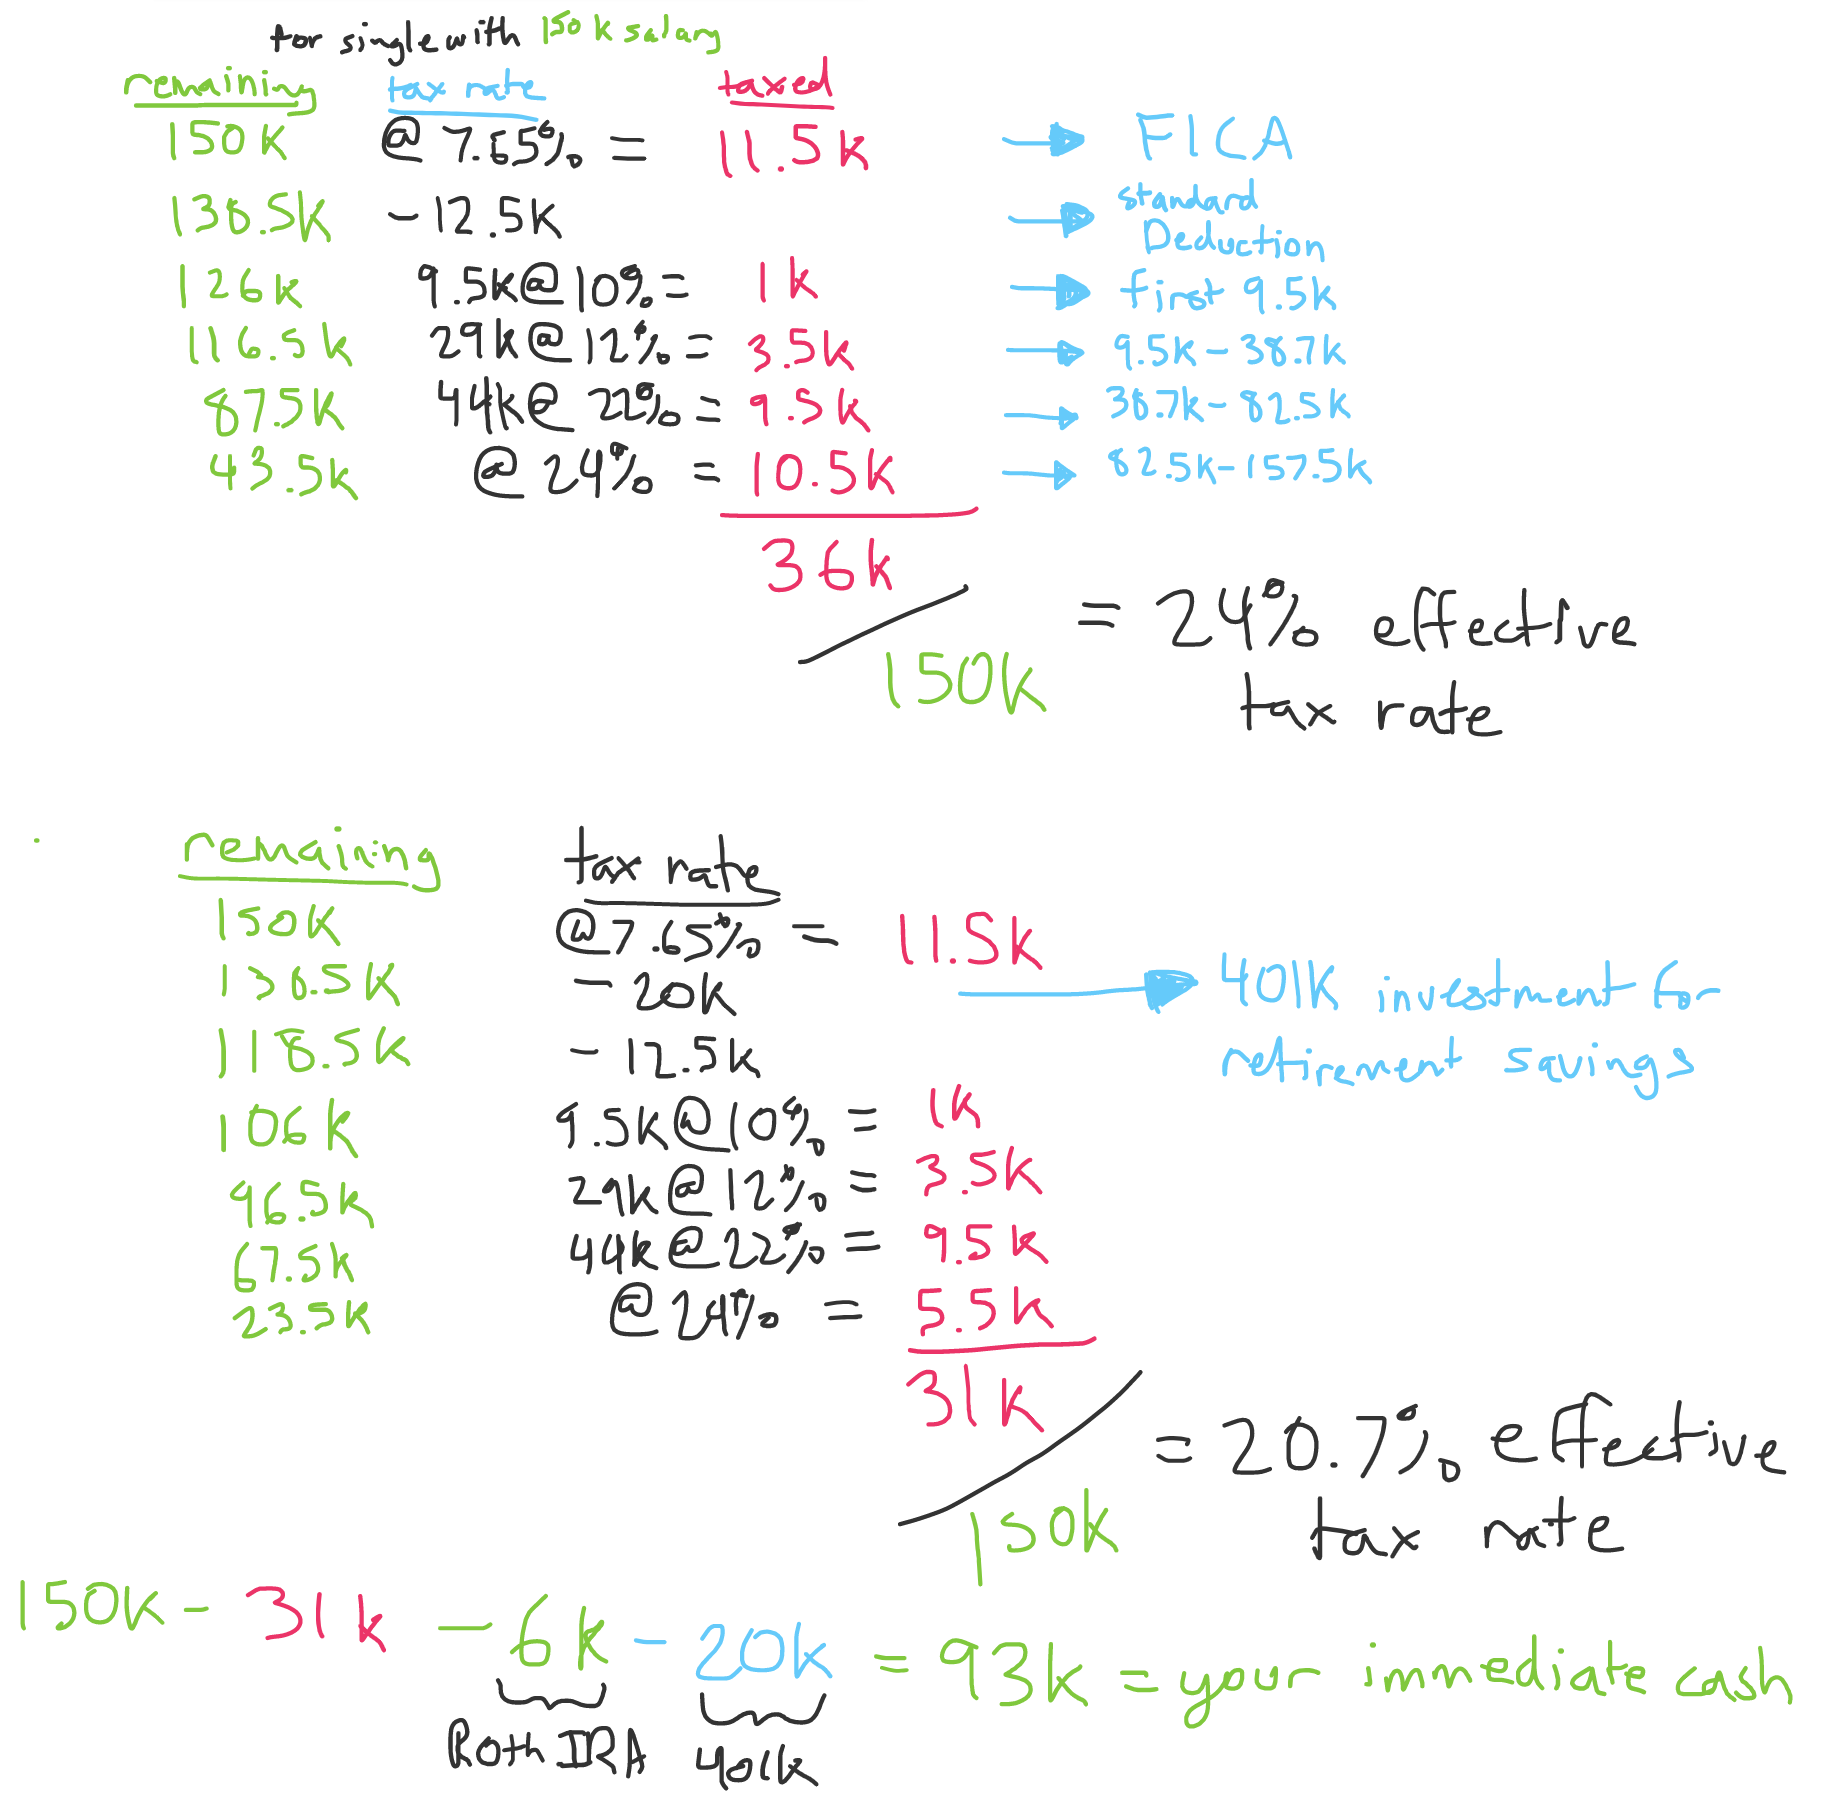 for single with 150k salary
remaining tax rate taxed
150k @ 7.65% = 11.5k → FICA
138.5k - 12.5k → standard Deduction
126k 9.5k @ 10% = 1k → first 9.5k
116.5k 29k @ 12% = 3.5k → 9.5k - 38.7k
87.5k 44k @ 22% = 9.5k → 38.7k - 82.5k
43.5k @ 24% = 10.5k → 82.5k - 157.5k
36k
/ 150k = 24% effective
tax rate
remaining tax rate
150k @ 7.65% = 11.5k
138.5k - 20k → 401k investment for
118.5k - 12.5k retirement savings
106k 9.5k @ 10% = 1k
96.5k 29k @ 12% = 3.5k
67.5k 44k @ 22% = 9.5k
23.5k @ 24% = 5.5k
31k
/ 150k = 20.7% effective
tax rate
150k - 31k - 6k - 20k = 93k = your immediate cash
Roth IRA 401k